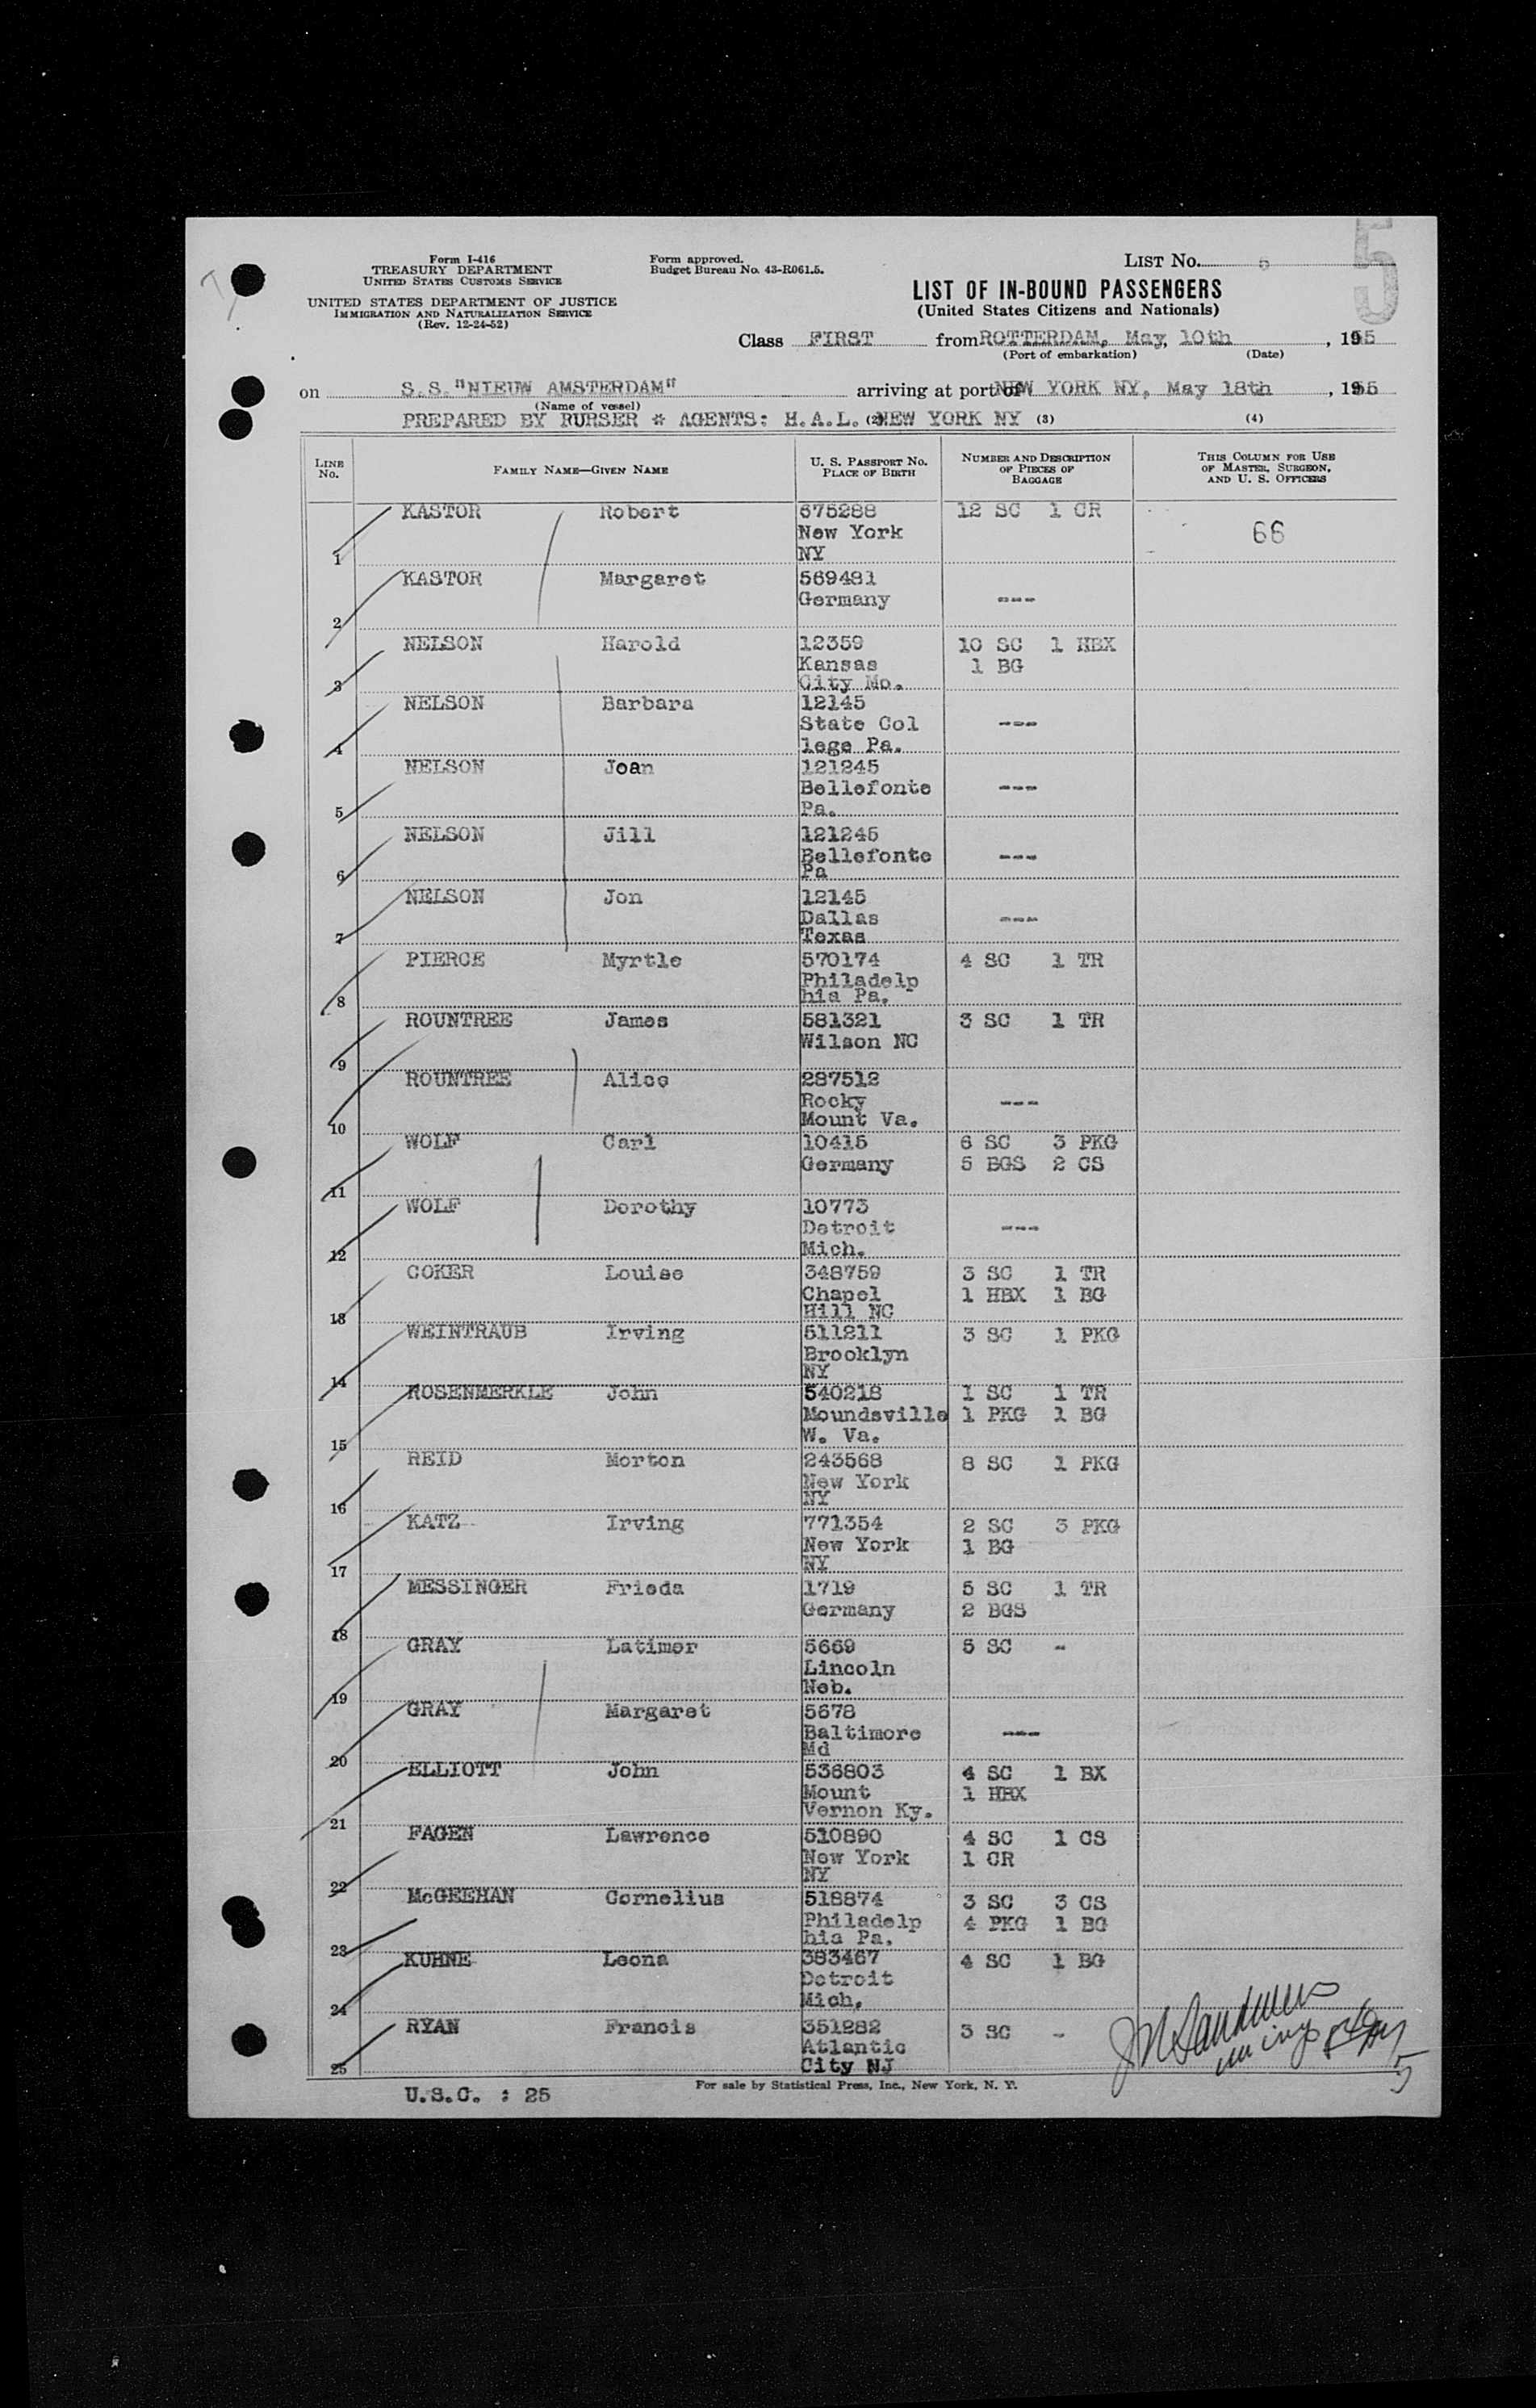 Form I-416
TREASURY DEPARTMENT
UNITED STATES CUSTOMS SERVICE
UNITED STATES DEPARTMENT OF JUSTICE
IMMIGRATION AND NATURALIZATION SERVICE
(Rev. 12-24-52)
Form approved.
Budget Bureau No. 43-R061.5.
LIST No. 5
5
LIST OF IN-BOUND PASSENGERS
(United States Citizens and Nationals)
Class FIRST from ROTTERDAM, May, 10th, 1955
(Port of embarkation) (Date)
on S.S. "NIEUW AMSTERDAM" arriving at port of NEW YORK NY, May 18th, 1955
(Name of vessel)
PREPARED BY PURSER * AGENTS: H.A.L. (2) NEW YORK NY (3) (4)
LINE No. FAMILY NAME—GIVEN NAME U. S. PASSPORT No. PLACE OF BIRTH NUMBER AND DESCRIPTION OF PIECES OF BAGGAGE THIS COLUMN FOR USE OF MASTER, SURGEON, AND U. S. OFFICERS
1 KASTOR Robert 675288 12 SC 1 CR
New York 66
NY
2 KASTOR Margaret 569481
Germany ---
3 NELSON Harold 12359 10 SC 1 HBX
Kansas 1 BG
City Mo.
4 NELSON Barbara 12145
State Col ---
lege Pa.
5 NELSON Joan 121245
Bellefonte ---
Pa.
6 NELSON Jill 121245
Bellefonte ---
Pa
7 NELSON Jon 12145
Dallas ---
Texas
8 PIERCE Myrtle 570174 4 SC 1 TR
Philadelp
hia Pa.
9 ROUNTREE James 581321 3 SC 1 TR
Wilson NC
10 ROUNTREE Alice 287512
Rocky ---
Mount Va.
11 WOLF Carl 10415 6 SC 3 PKG
Germany 5 BGS 2 CS
12 WOLF Dorothy 10773
Detroit ---
Mich.
13 COKER Louise 348759 3 SC 1 TR
Chapel 1 HBX 1 BG
Hill NC
14 WEINTRAUB Irving 511211 3 SC 1 PKG
Brooklyn
NY
15 ROSENMERKLE John 540218 1 SC 1 TR
Moundsville 1 PKG 1 BG
W. Va.
16 REID Morton 243568 8 SC 1 PKG
New York
NY
17 KATZ Irving 771354 2 SC 3 PKG
New York 1 BG
NY
18 MESSINGER Frieda 1719 5 SC 1 TR
Germany 2 BGS
19 GRAY Latimer 5669 5 SC -
Lincoln
Neb.
20 GRAY Margaret 5678
Baltimore ---
Md
21 ELLIOTT John 536803 4 SC 1 BX
Mount 1 HBX
Vernon Ky.
22 FAGEN Lawrence 510890 4 SC 1 CS
New York 1 CR
NY
23 McGEEHAN Cornelius 518874 3 SC 3 CS
Philadelp 4 PKG 1 BG
hia Pa.
24 KUHNE Leona 383467 4 SC 1 BG
Detroit
Mich.
25 RYAN Francis 351282 3 SC -
Atlantic
City NJ
For sale by Statistical Press, Inc., New York, N. Y.
U.S.C. : 25